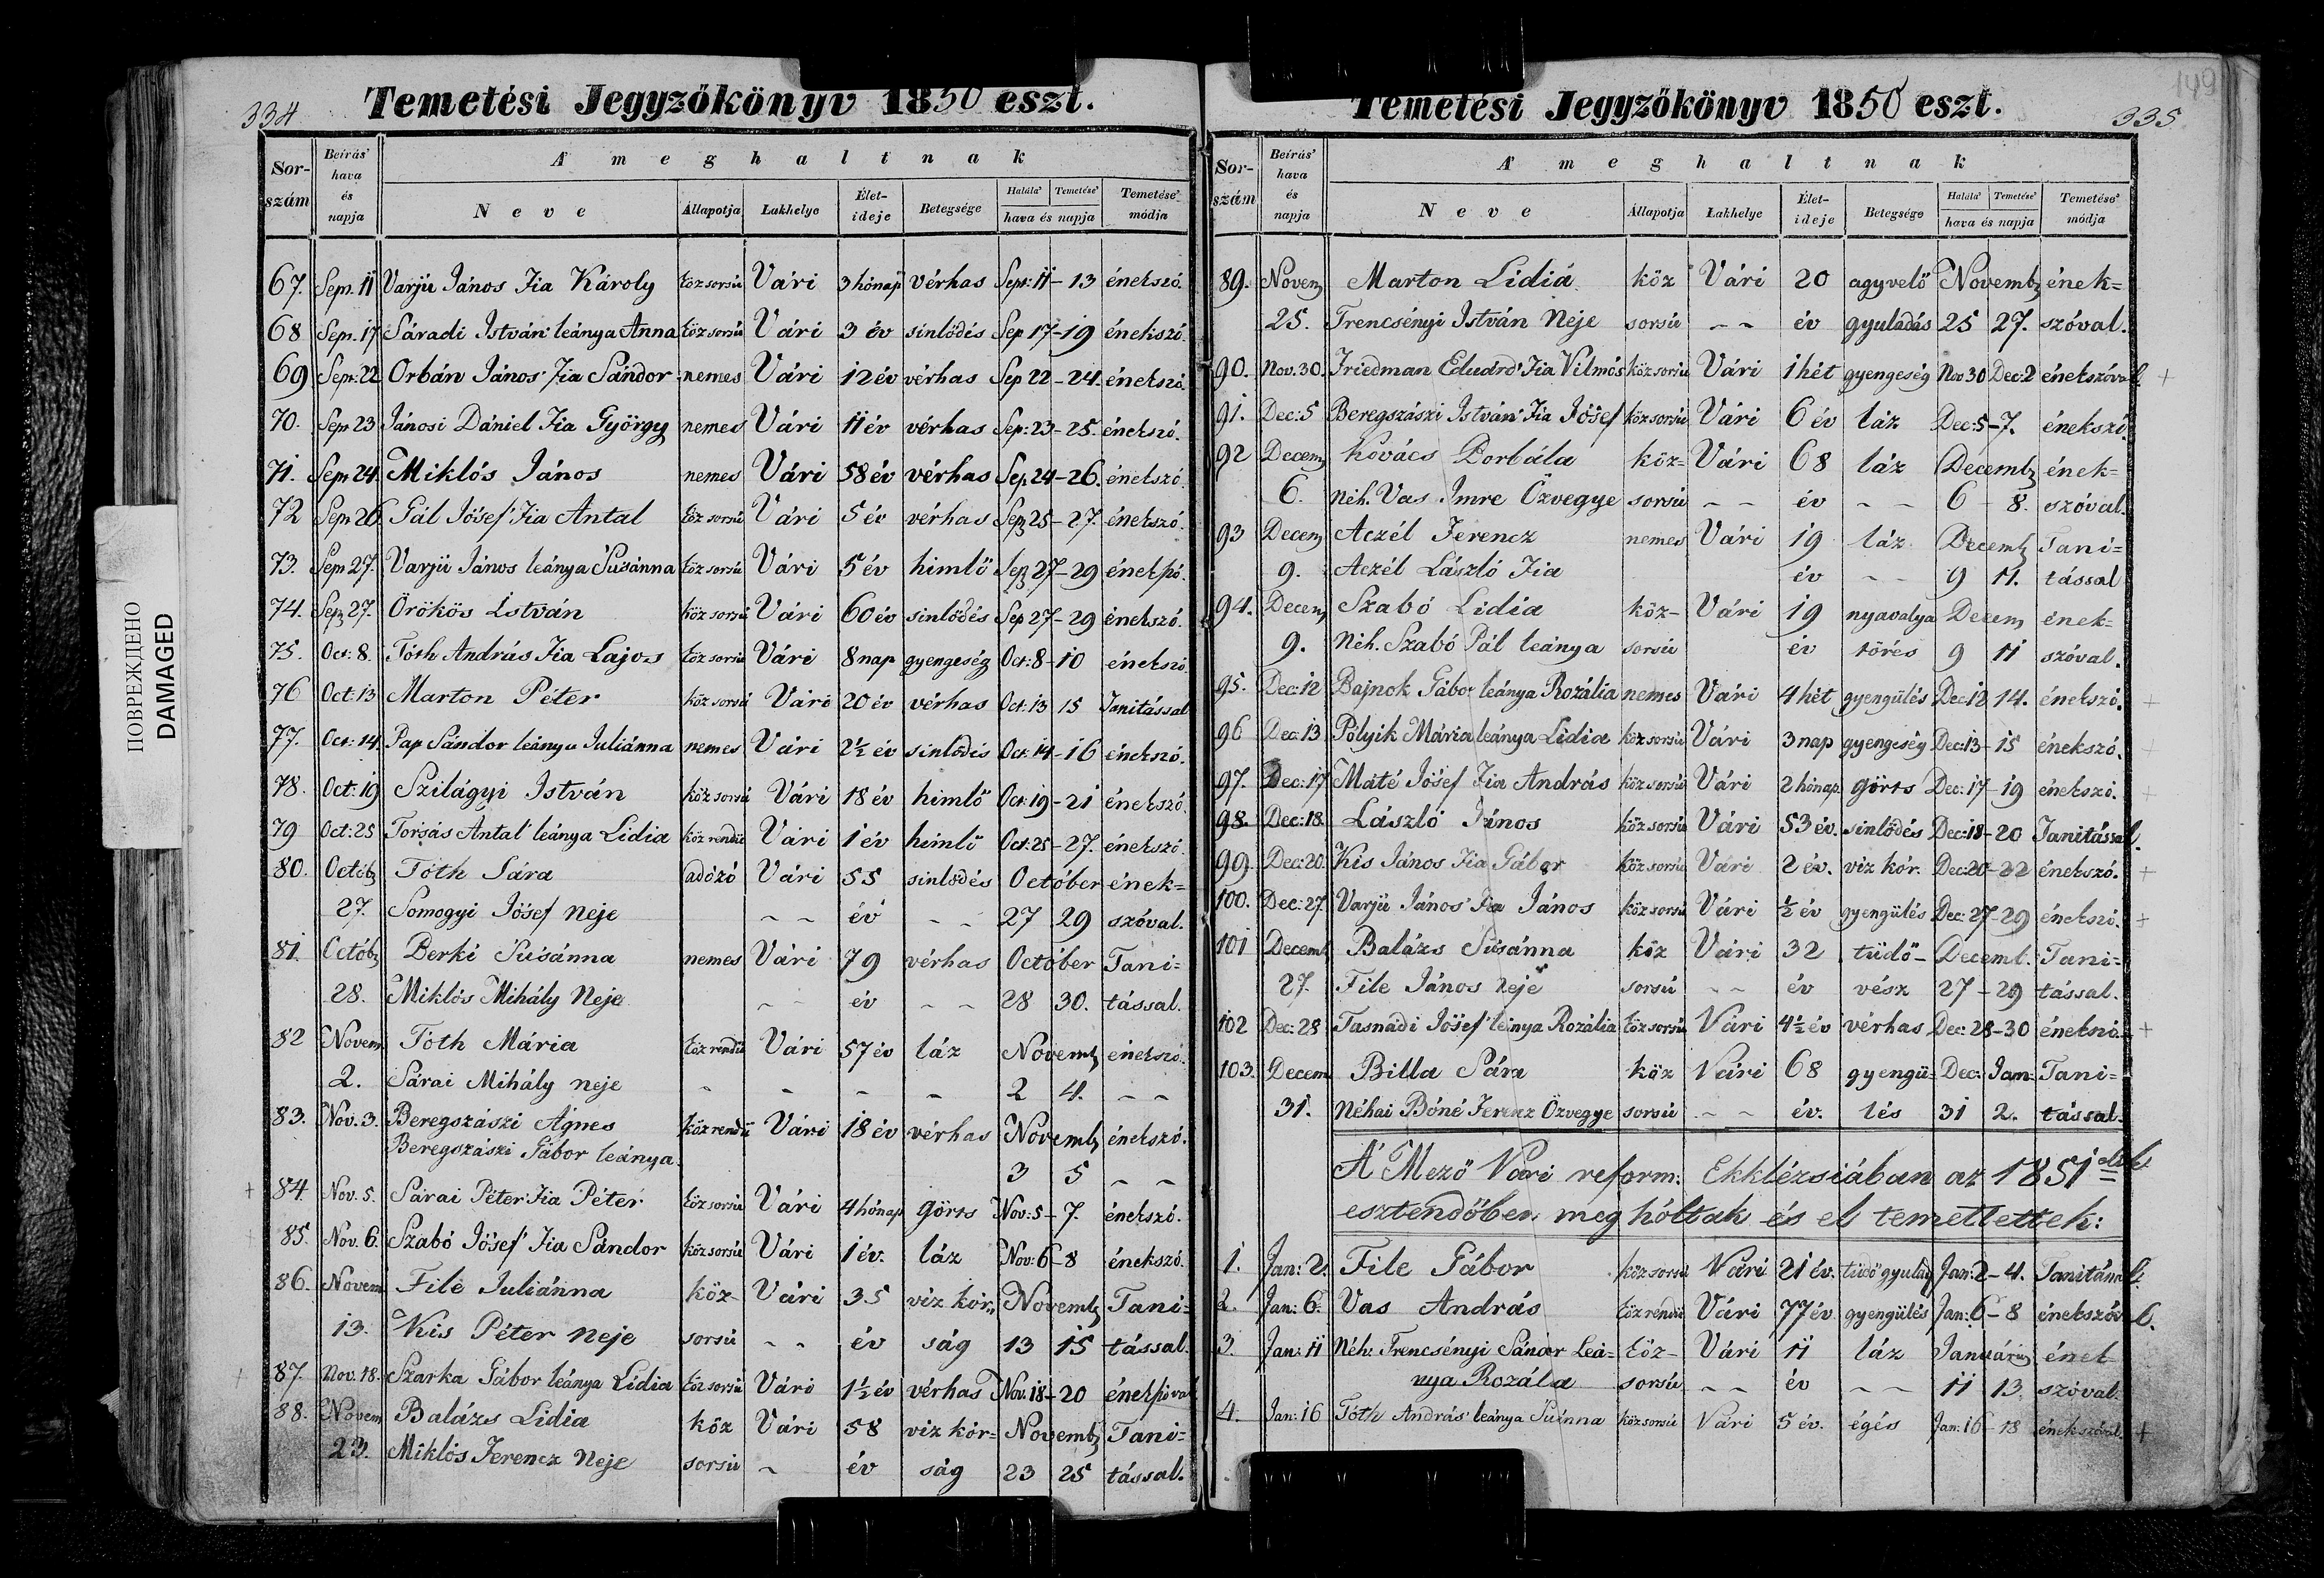 334
Temetési Jegyzőkönyv 1850 eszt.
Sorszám
Beírás' hava és napja
A' meghaltnak
Neve Állapotja Lakhelye Életideje Betegsége Halála' Temetése' hava és napja Temetése' módja
67. Sepr. 11 Varjú János Fia Károly köz sorsú Vári 3 hónap vérhas Sept: 11 – 13 énekszó.
68 Sepr. 17 Sáradi István leánya Anna köz sorsú Vári 3 év sinlődés Sep 17 – 19 énekszó.
69 Sepr: 22 Orbán János' Fia Sándor nemes Vári 12 év vérhas Sep 22 – 24. énekszó.
70. Sepr 23 Jánosi Dániel Fia György nemes Vári 11 év vérhas Sep: 23 – 25. énekszó.
71. Sepr 24 Miklós János nemes Vári 58 év vérhas Sep 24 – 26. énekszó.
72 Sepr 26 Gál Jósef' Fia Antal köz sorsú Vári 5 év vérhas Sep 25 – 27. énekszó.
73. Sepr 27. Varjú János leánya Susánna köz sorsú Vári 5 év himlő Sep 27 – 29 énekszó.
74. Sep 27. Örökös István köz sorsú Vári 60 év sinlődés Sep 27 – 29 énekszó.
75. Oct: 8. Tóth András Fia Lajos köz sorsú Vári 8 nap gyengeség Oct: 8 – 10 énekszó
76 Oct: 13 Marton Péter köz sorsú Vári 20 év vérhas Oct: 13 15 Tanitással
77. Oct: 14. Pap Sándor leánya Juliánna nemes Vári 2½ év sinlődés Oct: 14 – 16 énekszó.
78. Oct: 19 Szilágyi István köz sorsú Vári 18 év himlő Oct: 19 – 21 énekszó.
79 Oct: 25 Torsás Antal' leánya Lidia köz rendü Vári 1 év himlő Oct: 25 – 27. énekszó.
80. Octób Tóth Sára adózó Vári 55 sinlődés Octóber ének=
27. Somogyi Jósef neje – – év – – 27 29 szóval.
81. Octób Berki Susánna nemes Vári 79 vérhas Octóber Tani=
28. Miklós Mihály Neje – – év – – 28 30. tással.
82 Novem Tóth Mária köz rendü Vári 57 év láz Novemb énekszó.
2. Sárai Mihály neje – – – – 2 4. – –
83. Nov. 3. Beregszászi Ágnes köz rendü Vári 18 év vérhas Novemb énekszó.
Beregszászi Gábor leánya. 3 5 – –
+ 84. Nov. 5. Sárai Péter Fia Péter köz sorsú Vári 4 hónap görts Nov: 5 – 7. énekszó.
85. Nov. 6. Szabó Jósef' Fia Sándor köz sorsú Vári 1 év. láz Nov: 6 – 8 énekszó.
86. Novem File Juliánna köz- Vári 35 viz kór Novemb Tani=
13. Kis Péter neje sorsú – – év ság 13 15 tással.
+ 87. Nov. 18. Szarka Gábor leánya Lidia köz sorsú Vári 1½ év vérhas Nov. 18 – 20 énekszóval
88. Novem Balázs Lidia köz Vári 58 viz kór= Novemb Tani=
23. Miklós Ferencz Neje sorsú – év ság 23 25 tással.
149
335
Temetési Jegyzőkönyv 1850 eszt.
Sorszám
Beírás' hava és napja
A' meghaltnak
Neve Állapotja Lakhelye Életideje Betegsége Halála' Temetése' hava és napja Temetése' módja
89. Novem Marton Lidiá köz Vári 20 agyvelő Novemb ének=
25. Trencsényi István Neje sorsú – – év gyuladás 25 27. szóval.
90. Nov. 30. Friedman Eduárd' Fia Vilmos köz sorsú Vári 1 hét gyengeség Nov 30 Dec: 2 énekszóval. +
91. Dec: 5 Beregszászi István' Fia Jósef köz sorsú Vári 6 év láz Dec: 5 – 7. énekszó.
92 Decem Kovács Borbála köz= Vári 68 láz Decemb ének=
6. Néh. Vas Imre Özvegye sorsú – – év – – 6 – 8. szóval.
93 Decem Aczél Ferencz nemes Vári 19 láz Decemb Tani=
9. Aczél László Fia év – – 9 11. tással
94. Decem Szabó Lidia köz- Vári 19 nyavalya Decem ének=
9. Néh. Szabó Pál leánya sorsú év törés 9 11 szóval.
95. Dec: 12 Bajnok Gábor leánya Rozália nemes Vári 4 hét gyengülés Dec: 12 14. énekszó. +
96 Dec: 13 Pólyik Mária leánya Lidia köz sorsú Vári 3 nap gyengeség Dec: 13 – 15 énekszó. +
97. Dec: 17 Máté Jósef Fia András köz sorsú Vári 2 hónap görts Dec: 17 – 19 énekszó. +
98. Dec: 18. László János köz sorsú Vári 53 év. sinlődés Dec: 18 – 20 Tanitással.
99. Dec: 20. Kis János Fia Gábor köz sorsú Vári 2 év. viz kór. Dec: 20 – 22 énekszó. +
100. Dec: 27 Varjú János' Fia János köz sorsú Vári ½ év gyengülés Dec: 27 – 29 énekszó. +
101 Decemb Balázs Susánna köz Vári 32 tüdő- Decemb. Tani=
27. File János neje sorsú – – év vész 27 – 29 tással.
102 Dec: 28 Tasnádi Jósef' leánya Rozália köz sorsú Vári 4½ év vérhas Dec: 28 – 30 énekszó. +
103. Decem Billa Sára köz Vári 68 gyengü= Dec: Jan: Tani=
31. Néhai Bóné Ferencz Özvegye sorsú – – év. lés 31 2. tással.
A' Mező Vári reform: Ekklézsiában az 1851
esztendőben meg hóltak és el temettettek:
1. Jan: 2. File Gábor köz sorsú Vári 21 év. tüdő gyulad Jan: 2 – 4. Tanitással.
2. Jan: 6. Vas András köz rendü Vári 77 év. gyengülés Jan: 6 – 8 énekszóval.
3. Jan: 11 Néh: Trencsényi Sándor Leá= köz- Vári 11 láz Január ének
nya Rozália sorsú – – év – – 11 13. szóval.
4. Jan: 16 Tóth András' leánya Susánna köz sorsú Vári 5 év. égés Jan: 16 – 18 énekszóval. +
ПОВРЕЖДЕНО
DAMAGED